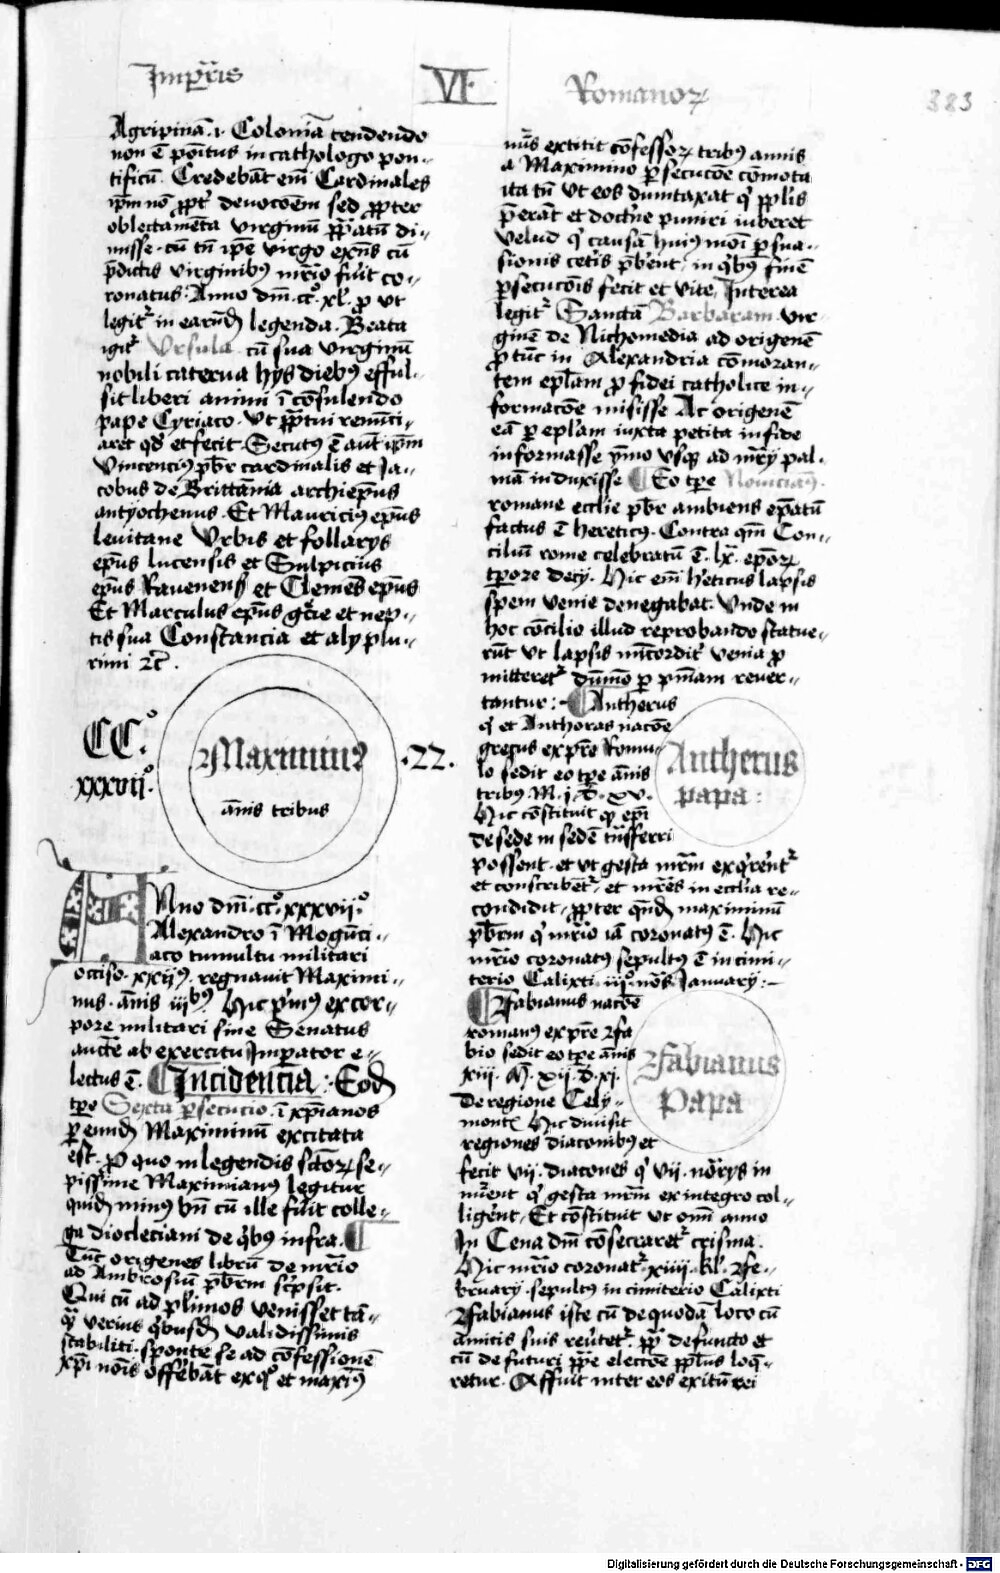 Imperatoris
VI
Romanoꝝ
383
Agripinā · ⁊ Coloniā tendendo
non ē poĩtus in cathologo pon-
tificū. Credebāt em̃ Cardinales
ip̃m nō ꝓpt̃ deuocōem sed ꝓpter
oblectamēta virginū pp̃atū di-
misse · cū tn̄ ip̃e virgo exn̄s cū
p̄dictis virginibꝫ mr̃io fuit co-
ronatus · Anno dn̄i ccº xlº ꝓ vt
legit̃ in earūd legenda. Beata
igit̃ Vrsula cū sua virginū
nobili caterua hys diebꝫ efful-
sit liberi animi ī cōsulendo
pape Cyriaco · vt pp̃atui renūci-
aret qd̃ et fecit · Secutꝰ ē aut̃ ip̃m
Vincenciꝰ pb̃r cardinalis et Ja-
cobus de Brittānia archiep̃us
antyochenus · Et Mauriciꝰ ep̃us
leuitane Vrbis et follarys
ep̃us lucensis et Sulpicius
ep̃us Rauenenẜ et Clemēs ep̃us
Et Marculus ep̃us grẽcie et nep-
tis sua Constancia et aly plu-
rimi ⁊c̃ ·
CC·º
xxxvii·º
Maximinꝰ
ānis tribus
·22·
Anno dn̄i · ccº xxxviiº
Alexandro ī Mogūci-
aco tumultu militari
occiso · xxijꝰ · regnauit Maximi-
nus · ānis iiiᵇꝰ · Hic p̄mꝰ ex cor-
pore militari sine Senatus
aucte ab exercitu Imp̃ator e-
lectus ē. ¶ Incidencia : Eod
tp̃e Sexta p̃secucio · ī xp̃ianos
ꝑ eund Maximinū excitata
est · ꝓ quo in legendis sc̃toꝝ se-
pissime Maximianus legitur
quid minus bn̄ cū ille fuit colle-
ga diocleciani de q̃bꝰ infra. ¶
Tūc origenes librū de mr̃io
ad Ambrosiū pb̃rm sc̃psit.
Qui cū ad pl̃imos venisset tā-
q̃ verius q̃busd validissimis
stabiliti · sponte se ad cōfessionē
xp̃i nōis offebāt ex q° et maxiꝰ
nūs extitit cōfessoꝝ tribꝰ annis
a Maximino ꝑsecucōe cōmota
ita tn̄ vt eos dumtaxat q̃ pp̃lis
p̄erāt et doctr̃ine puniri iuberet
velud q̃ causā huiꝰmōi ꝑsua-
sionis cet̃is p̄bent, in q̃bꝰ finē
ꝑsecucōis fecit et vite, Interea
legit̃ Sanctā Barbaram vir-
ginē de Nichomedia ad origenē
ꝓ tūc in Alexandria cōmoran-
tem epl̃am ꝓ fidei catholice in-
formacōe misisse Ac origenē
eā ꝑ epl̃am iuxta petita in fide
informasse ymo vsqꝫ ad mr̃y pal-
mā induxisse ¶ Eo tp̃e Nouicianꝰ
romane ecclie pb̃r ambiens ep̃atū
factus ē hereticꝰ · Contra qm̄ Con-
ciliū rome celebratū ē · lx · ep̃oꝝ
tp̃ore decij · Hic em̃ h̃eticus lapsis
spem venie denegabat · Vnde in
hoc cōcilio illud reprobando statue-
rūt vt lapsis mīcordit̃ venia ꝓ
mitteret̃ dūmō ꝑ pn̄iam reuer-
tantur :- ¶ Antherus
q̃ et Anthoras nacōe
grecus ex pr̃e Romu-
lo sedit eo tp̃e ānis
tribꝰ M · j · d · xv ·
Hic cōstituit q̃ ep̃i
de sede in sedē tn̄sferri
possent · et vt gesta mr̃m exq̃rent̃
et conscribet̃ · et mr̃es in ecclia re-
condidit, ꝓpter q̄nd maximinū
pb̃rm q̃ mr̃io iā coronatꝰ ē. Hic
mr̃io coronatꝰ sepultꝰ ē in cimi-
terio Calixti · iijº · nōs January :-
Antherus
papa :
¶ Fabianus nacōe
romanꝰ ex pr̃e Fa
bio sedit eo tp̃e ānis
xiii · M · xij · d · xj ·
De regione Cely-
montẽ Hic diuisit
regiones diaconibꝰ et
Fabianus
Papa
fecit vij · diacones q̃ vij · notarys in
minent q̃ gesta mr̃m ex integro col-
ligent, Et cōstituit vt om̄i anno
In Cena dn̄i cōsecraret̃ crisma.
Hic mr̃io coronat̃ xiiii · kl̃ · Fe-
bruary · sepultꝰ in cimiterio Calixti
Fabianus iste cū de quodā loco cū
amicis suis reūtet̃ pp̃ defuncto et
cū de futuri pp̃e elecōe pp̃lus loq̄-
retur. Affuit inter eos exitū rei
Digitalisierung gefördert durch die Deutsche Forschungsgemeinschaft - DFG